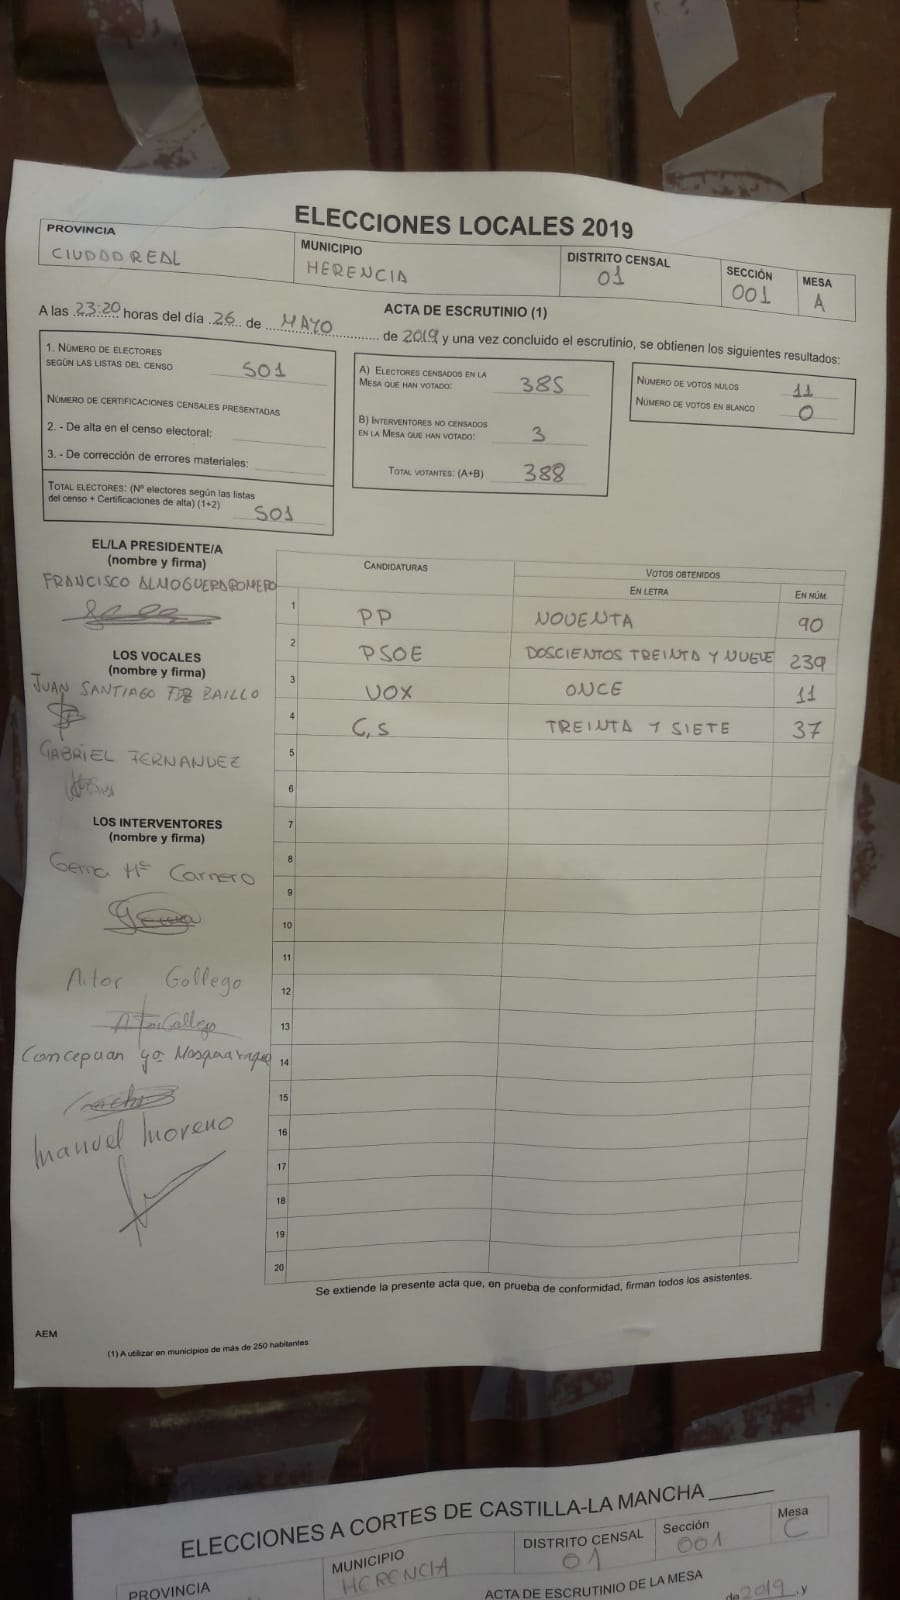 ELECCIONES LOCALES 2019
PROVINCIA
CIUDAD REAL
MUNICIPIO
HERENCIA
DISTRITO CENSAL
01
SECCIÓN
001
MESA
A
ACTA DE ESCRUTINIO (1)
A las 23:20 horas del día 26 de MAYO de 2019 y una vez concluido el escrutinio, se obtienen los siguientes resultados:
1. NÚMERO DE ELECTORES
SEGÚN LAS LISTAS DEL CENSO 501
NÚMERO DE CERTIFICACIONES CENSALES PRESENTADAS
2. - De alta en el censo electoral:
3. - De corrección de errores materiales:
TOTAL ELECTORES: (Nº electores según las listas
del censo + Certificaciones de alta) (1+2) 501
A) ELECTORES CENSADOS EN LA
MESA QUE HAN VOTADO: 385
B) INTERVENTORES NO CENSADOS
EN LA MESA QUE HAN VOTADO: 3
TOTAL VOTANTES: (A+B) 388
NÚMERO DE VOTOS NULOS 11
NÚMERO DE VOTOS EN BLANCO 0
EL/LA PRESIDENTE/A
(nombre y firma)
FRANCISCO ALMOGUERA ROMERO
LOS VOCALES
(nombre y firma)
JUAN SANTIAGO FDE BAILLO
GABRIEL FERNANDEZ
LOS INTERVENTORES
(nombre y firma)
Gema Mª Carnero
Gema
Aitor Gallego
Aitor Gallego
Concepcion
Manuel Moreno
CANDIDATURAS
VOTOS OBTENIDOS
EN LETRA
EN NÚM.
1 PP NOVENTA 90
2 PSOE DOSCIENTOS TREINTA Y NUEVE 239
3 VOX ONCE 11
4 C,s TREINTA Y SIETE 37
5
6
7
8
9
10
11
12
13
14
15
16
17
18
19
20
Se extiende la presente acta que, en prueba de conformidad, firman todos los asistentes.
AEM
(1) A utilizar en municipios de más de 250 habitantes
ELECCIONES A CORTES DE CASTILLA-LA MANCHA
PROVINCIA
MUNICIPIO
HERENCIA
DISTRITO CENSAL
01
Sección
001
Mesa
C
ACTA DE ESCRUTINIO DE LA MESA
de 2019, y